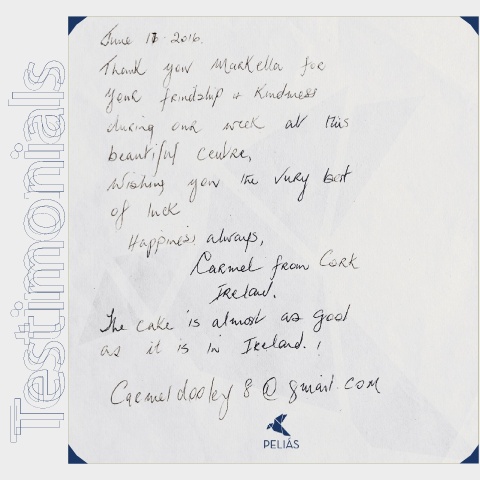 Testimonials
June 17 - 2016.
Thank you Markella for
your friendship + Kindness
during our week at this
beautiful centre,
Wishing you the very best
of luck
Happiness always,
Carmel from Cork
Ireland.
The cake is almost as good
as it is in Ireland. !
Carmeldooley8@gmail.com
PELIÁS